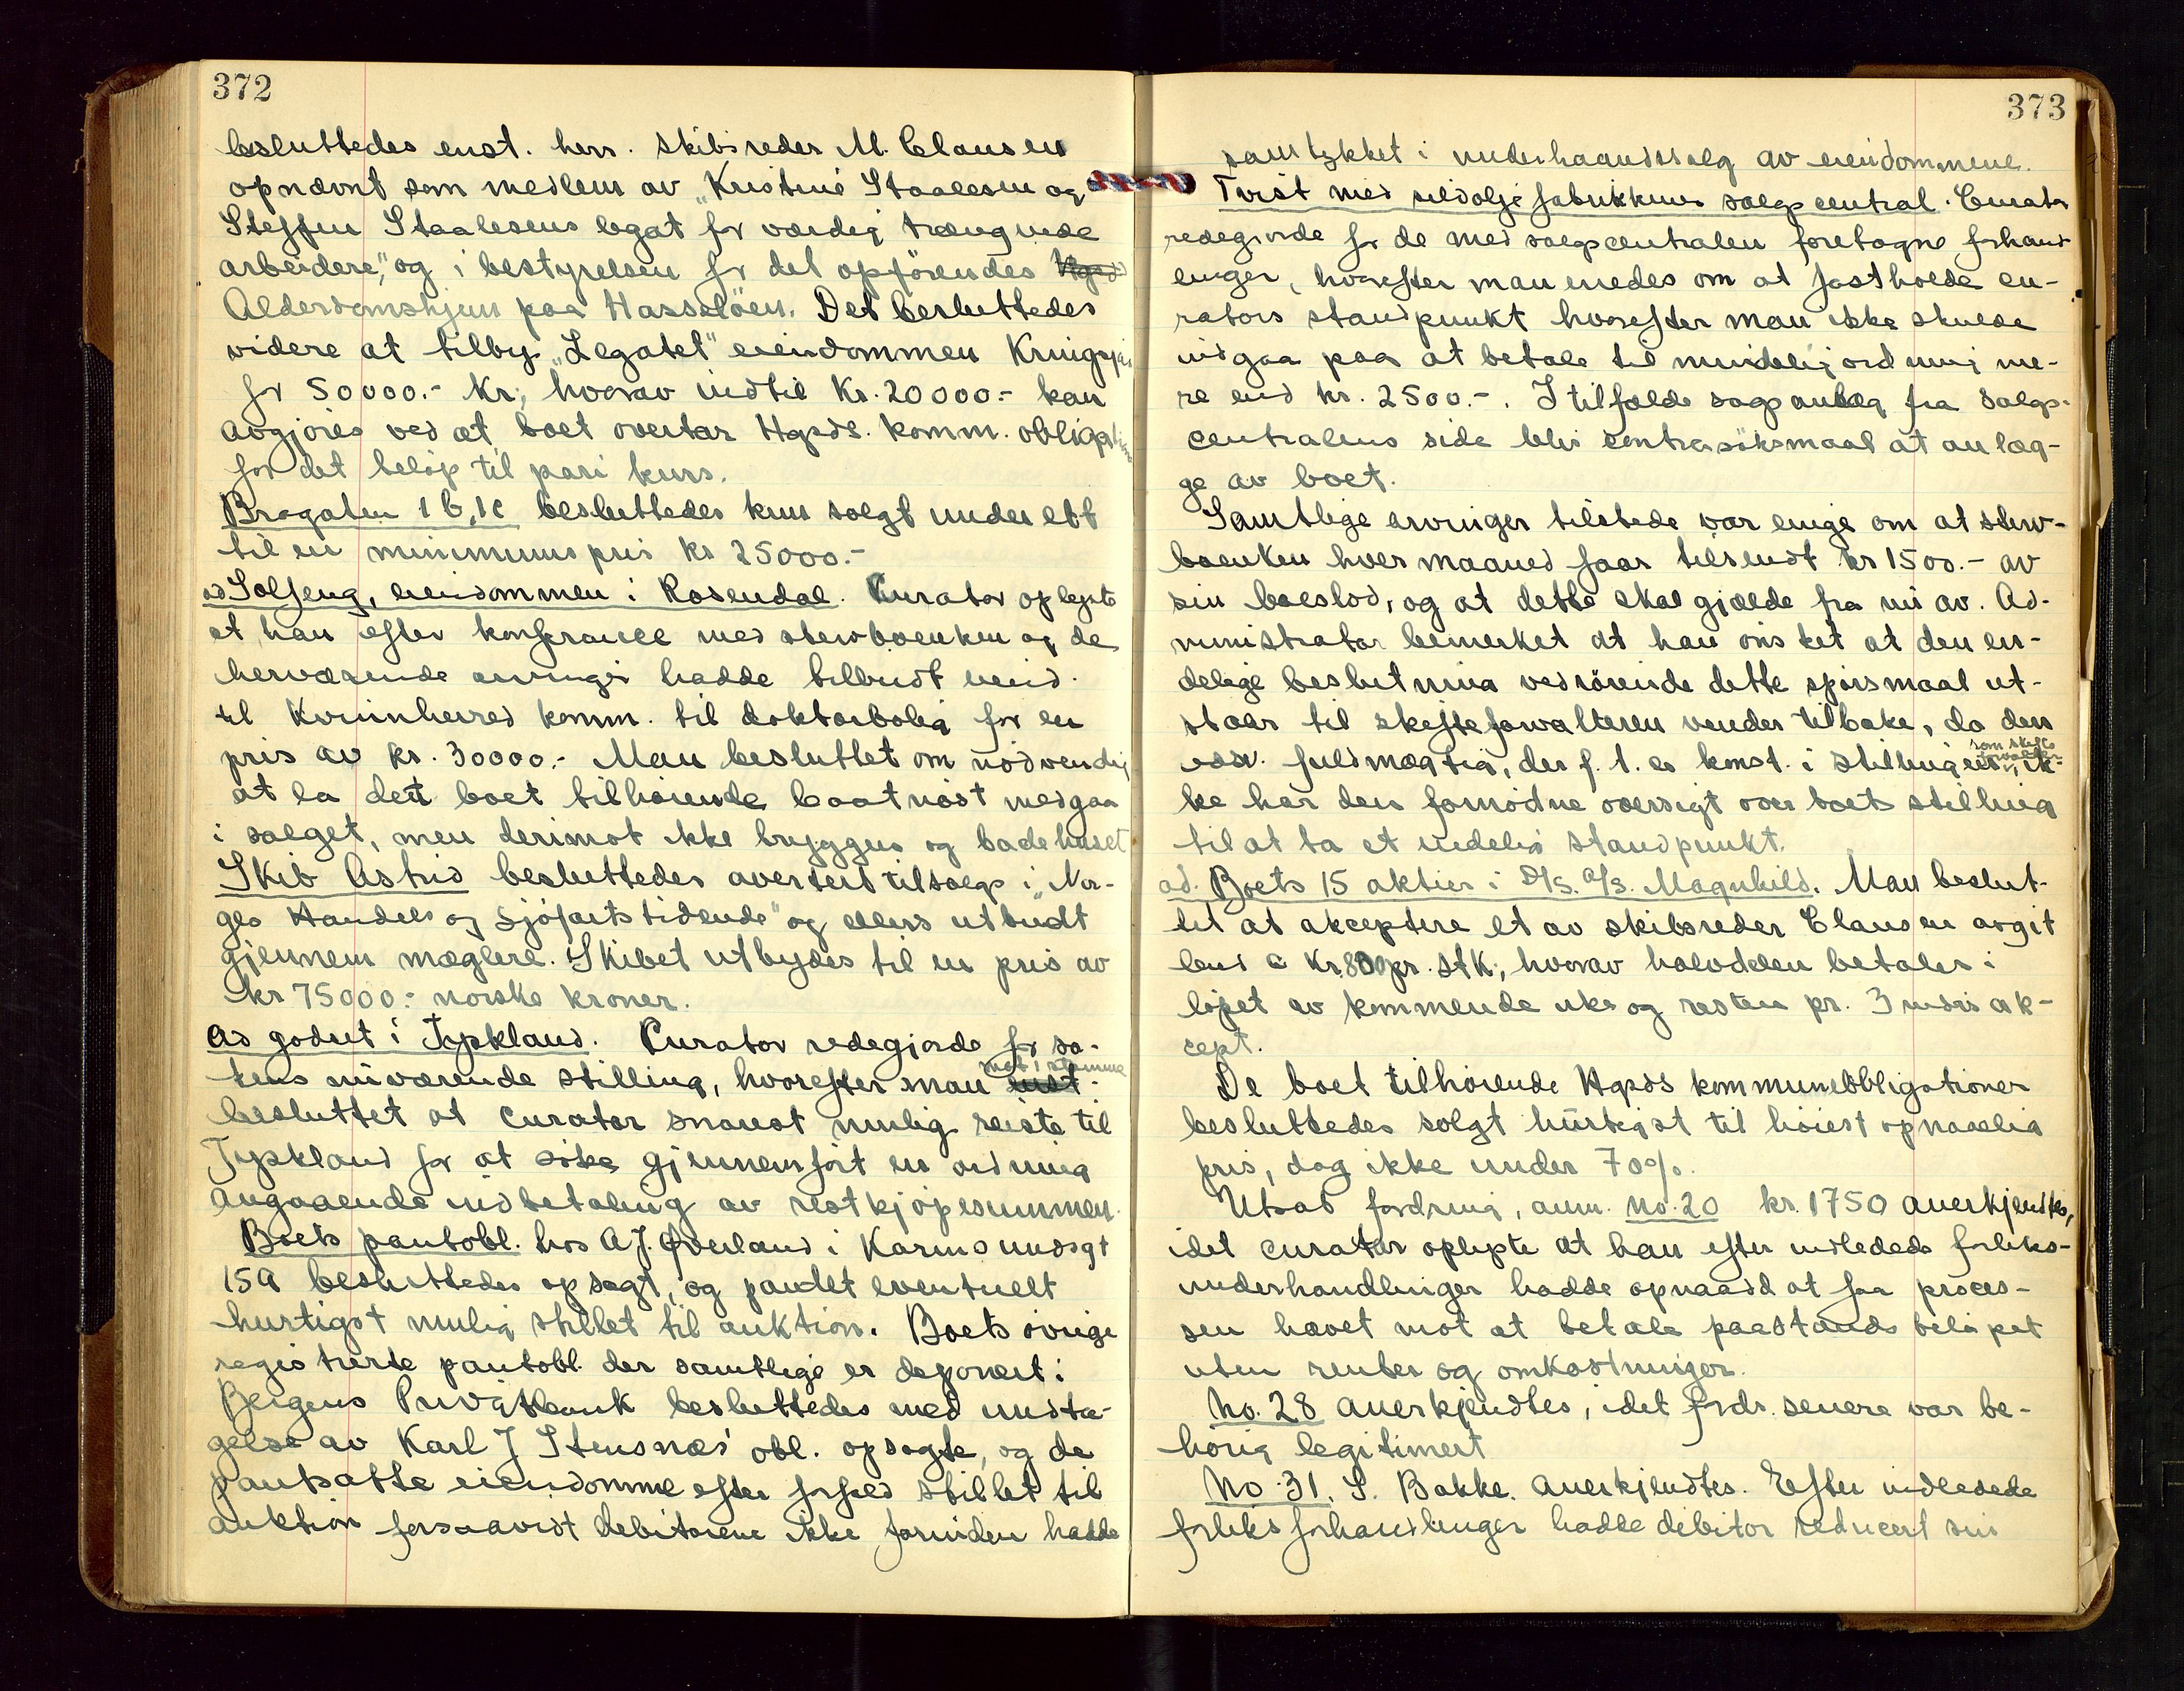 372
besluttedes enst. herr. skibsreder M. Clausen
opnævnt som medlem av „Kristine Staalesen og
Steffen Staalesens legat for værdig trængende
arbeidere," og i bestyrelsen for det opförendes Hgsds
Alderdomshjem paa Hasselöen. Det besluttedes
videre at tilby „Legatet" eiendommen Kringsjaa
for 50000.- kr, hvorav indtil kr. 20000.- kan
avgjöres ved at boet overtar Hgsds. komm. obligationer
for det belöp til pari kurs.
Bragaten 1 b, 1c besluttedes kun solgt under ett
til en minimumspris kr 25000.-
ad Solfeng, eiendommen i Rosendal. Kurator oplyste
at han efter konferance med sterboenken og de
herværende arvinger hadde tilbudt eiend.
til Kvinnherred komm. til doktorbolig for en
pris av kr. 30000.- Man besluttet om nödvendig
at la dett boet tilhörende baatnöst medgaa
i salget, men derimot ikke bryggen og badehuset
Skib Astrid besluttedes avertert tilsalgs i „Nor-
ges Handels og Sjöfartstidende" og ellers utbudt
gjennem mæglere. Skibet utbydes til en pris av
kr 75000.- norske kroner.
Ad godset i Tyskland. Curator redegjorde for sa-
kens nuværende stilling, hvorefter man mot 1 stemme
besluttet at curator snarest mulig reiste til
Tyskland for at söke gjennemfört en ordning
angaaende indbetaling av restkjöpesummen.
Boets pantobl. hos A.J. Øverland i Karmsundsgt
159 besluttedes opsagt, og pandet eventuelt
hurtigst mulig stillet til auktion. Boets övrige
registrerte pantobl. der samtlige er deponert i
Bergens Privatbank besluttedes med undta-
gelse av Karl J Stensnæs' obl. opsagte, og de
pantsatte eiendomme efter forfald stillet til
auktion forsaavidt debitorene ikke forinden hadde
373
samtykket i underhaandssalg av eiendommene.
Tvist med sildoljefabrikkenes salgscentral. Curator
redegjorde for de med salgscentralen foretagne forhand-
linger, hvorefter man enedes om at fastholde cu-
rators standpunkt hvorefter man ikke skulde
indgaa paa at betale til mindelig ordning me-
re end kr. 2500.-. I tilfælde sagsanlæg fra salgs-
centralens side blir contrasöksmaal at anlæg-
ge av boet.
Samtlige arvinger tilstede var enige om at sterv-
boenken hver maaned faar tilsendt kr 1500.- av
sin boeslod, og at dette skal gjælde fra nu av. Ad-
ministrator bemerket at han önsket at den en-
delige beslutning vedrörende dette spörsmaal ut-
staar til skifteforvalteren vender tilbake, da den
edsv. fuldmægtig, der f. t. er konst. i stillingen som skifteforvalter, ik-
ke har den fornödne oversigt over boets stilling
til at ta et endelig standpunkt.
ad. Boets 15 aktier i D/S. A/S. Magnhild. Man beslut-
tet at akceptere et av skibsreder Clausen avgit
bud a kr. 800 pr. stk, hvorav halvdelen betales i
löpet av kommende uke og resten pr. 3 mdrs ak-
cept.
De boet tilhörende Hgsds kommuneobbligationer
besluttedes solgt hurtigst til höiest opnaaelig
pris, dog ikke under 70%.
Utsat fordring, anm. no. 20 kr. 1750 anerkjendtes,
idet curator oplyste at han efter indledede forliks-
underhandlinger hadde opnaadd at faa proces-
sen hævet mot at betale paastands belöpet
uten renter og omkostninger.
No. 28 anerkjendtes, idet fordr. senere var be-
hörig legitimert
No. 31. S. Bakke. anerkjendtes. Efter indledede
forliksforhandlinger hadde debitor reducert sin